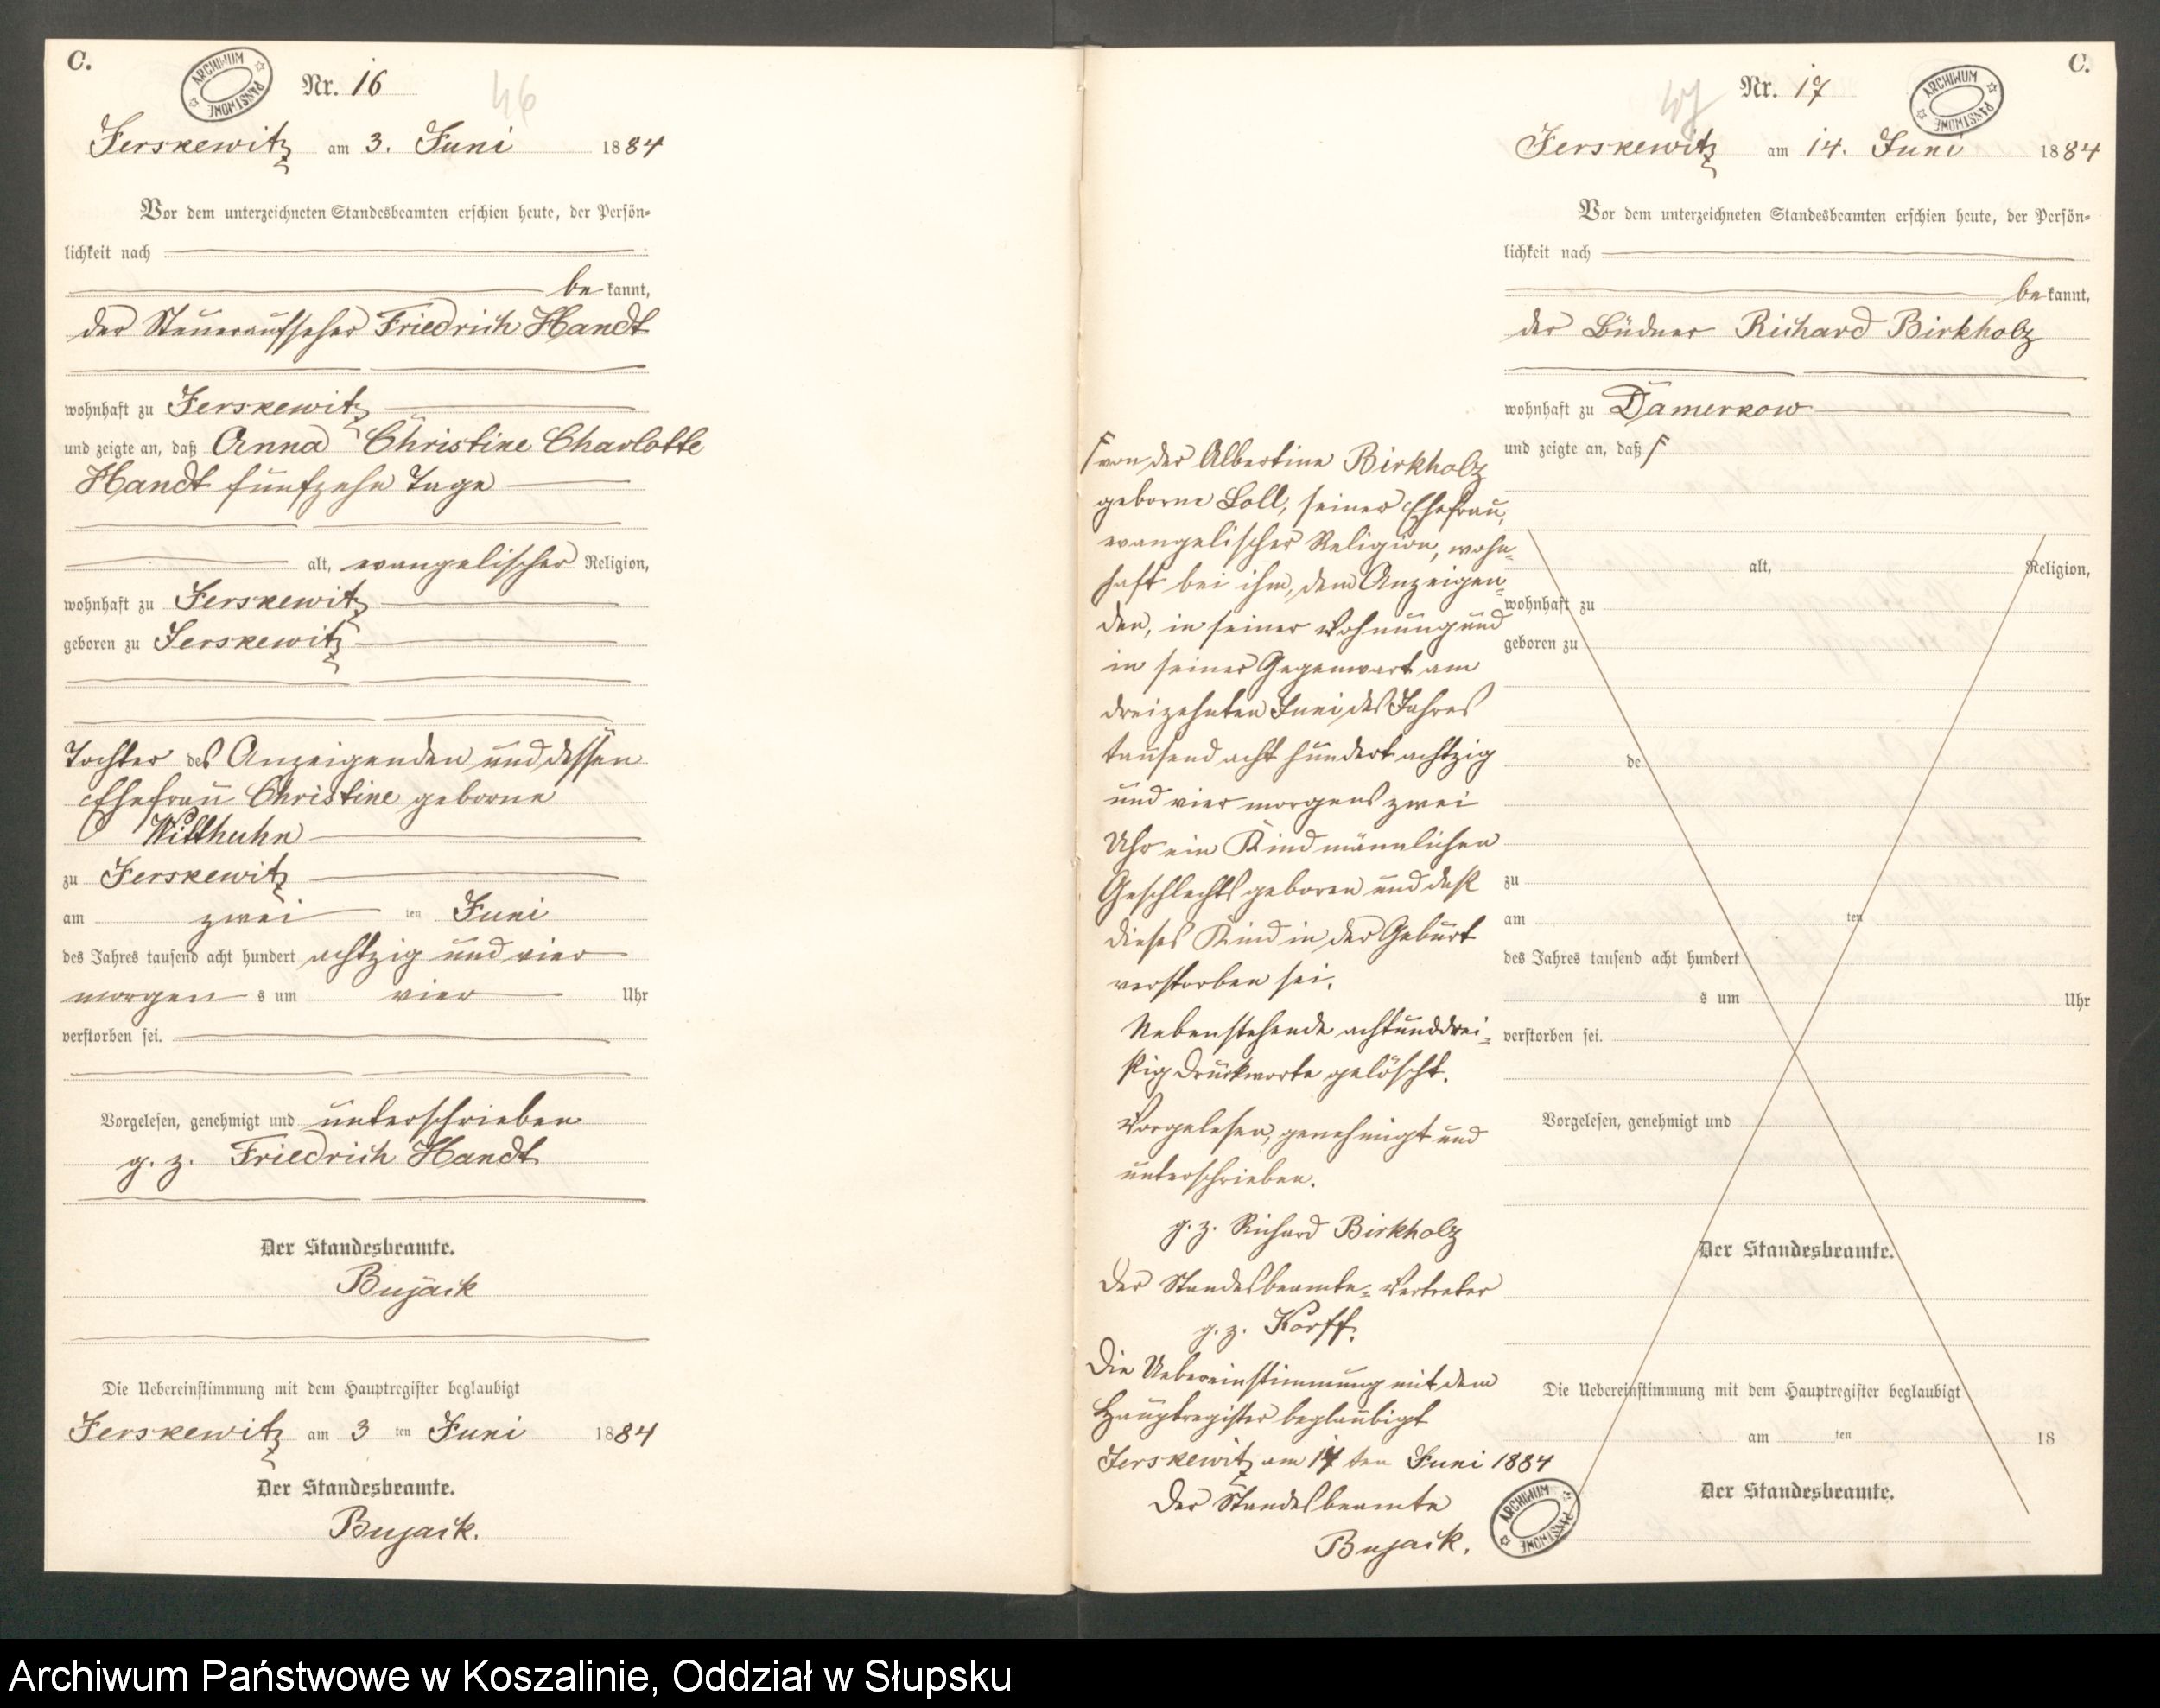 C.
ARCHIWUM PAŃSTWOWE
Nr. 16
46
Jerskewitz am 3. Juni 1884
Vor dem unterzeichneten Standesbeamten erschien heute, der Persön-
lichkeit nach
be kannt,
der Steueraufseher Friedrich Handt
wohnhaft zu Jerskewitz
und zeigte an, daß Anna Christine Charlotte
Handt fünfzehn Tage
alt, evangelischer Religion,
wohnhaft zu Jerskewitz
geboren zu Jerskewitz
Tochter des Anzeigenden und dessen
Ehefrau Christine geborne
Witthuhn
zu Jerskewitz
am zwei ten Juni
des Jahres tausend acht hundert achtzig und vier
morgen s um vier Uhr
verstorben sei.
Vorgelesen, genehmigt und unterschrieben
g. z. Friedrich Handt
Der Standesbeamte.
Bujack
Die Uebereinstimmung mit dem Hauptregister beglaubigt
Jerskewitz am 3 ten Juni 1884
Der Standesbeamte.
Bujack.
C.
ARCHIWUM PAŃSTWOWE
Nr. 17
47
Jerskewitz am 14. Juni 1884
Vor dem unterzeichneten Standesbeamten erschien heute, der Persön-
lichkeit nach
be kannt,
der Büdner Richard Birkholz
wohnhaft zu Damerkow
und zeigte an, daß F
F von der Albertine Birkholz
geborne Loll, seiner Ehefrau,
evangelischer Religion, wohn-
haft bei ihm, dem Anzeigen-
den, in seiner Wohnung und
in seiner Gegenwart am
dreizehnten Juni des Jahres
tausend acht hundert achtzig
und vier morgens zwei
Uhr ein Kind männlichen
Geschlechts geboren und daß
dieses Kind in der Geburt
verstorben sei.
Nebenstehende achtunddrei-
ßig Druckworte gelöscht.
Vorgelesen, genehmigt und
unterschrieben.
g. z. Richard Birkholz
Der Standesbeamte-Vertreter
g. z. Korff.
Die Uebereinstimmung mit dem
Hauptregister beglaubigt
Jerskewitz am 14 ten Juni 1884
Der Standesbeamte
Bujack.
ARCHIWUM PAŃSTWOWE
alt, Religion,
wohnhaft zu
geboren zu
de
zu
am ten
des Jahres tausend acht hundert
s um Uhr
verstorben sei.
Vorgelesen, genehmigt und
Der Standesbeamte.
Die Uebereinstimmung mit dem Hauptregister beglaubigt
am ten 18
Der Standesbeamte.
Archiwum Państwowe w Koszalinie, Oddział w Słupsku